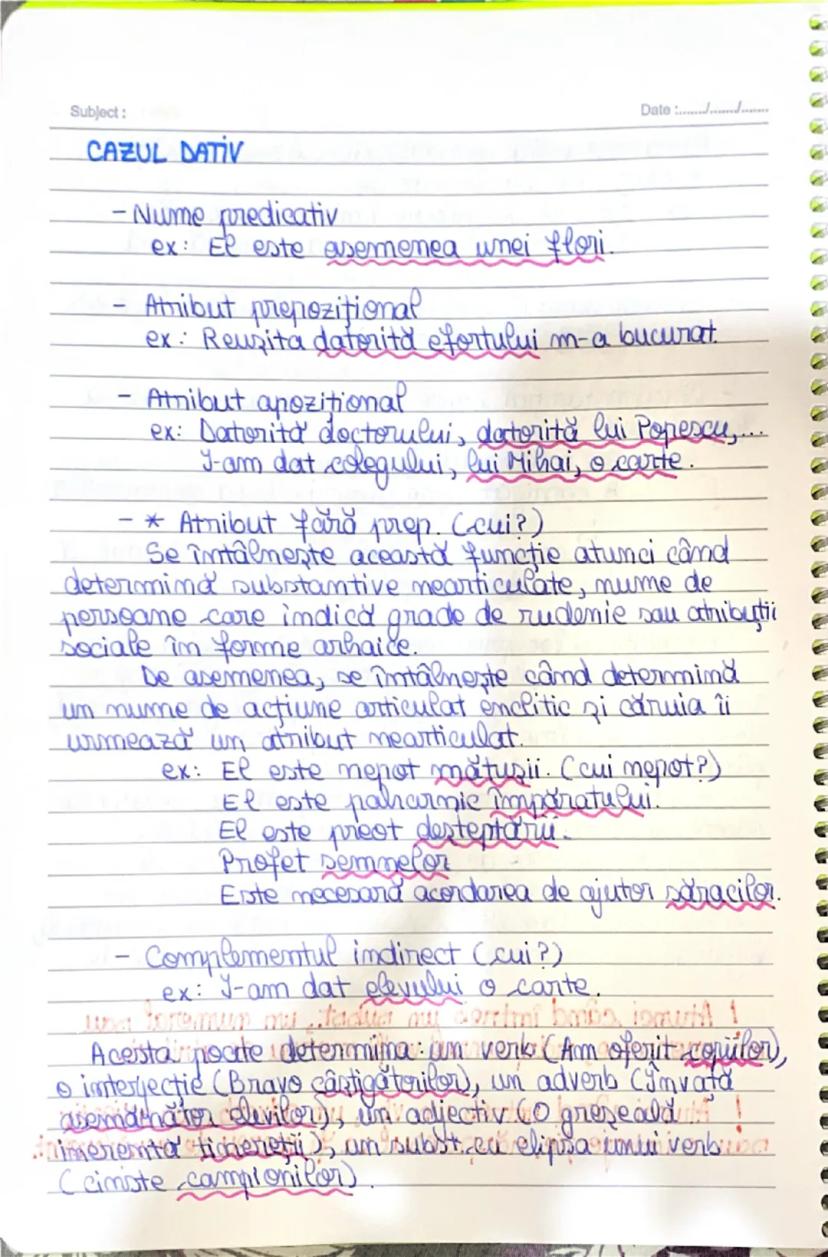 Subject :
Date :......./......./.......
CAZUL DATIV
- Nume predicativ
ex: El este asemenea unei flori.
- Atribut prepozițional
ex: Reușita datorită efortului m-a bucurat.
- Atribut apozițional
ex: Datorită doctorului, datorită lui Popescu,...
I-am dat colegului, lui Mihai, o carte.
- * Atribut fără prep. (cui?)
Se întâlnește această funcție atunci când
determină substantive nearticulate, nume de
persoane care indică grade de rudenie sau atribuții
sociale în forme arhaice.
De asemenea, se întâlnește când determină
un nume de acțiune articulat enclitic și căruia îi
urmează un atribut nearticulat.
ex: El este nepot mătușii. (cui nepot?)
El este paharnic împăratului.
El este preot deșteptării.
Profet semnelor
Este necesară acordarea de ajutor săracilor.
- Complementul indirect (cui?)
ex: I-am dat elevului o carte.
Acesta poate determina: un verb (Am oferit copiilor),
o interjecție (Bravo câștigătorilor), un adverb (Învață
asemănător elevilor), un adjectiv (O greșeală
inerentă tinereții), un subst. cu elipsa unui verb
(cinste campionilor).